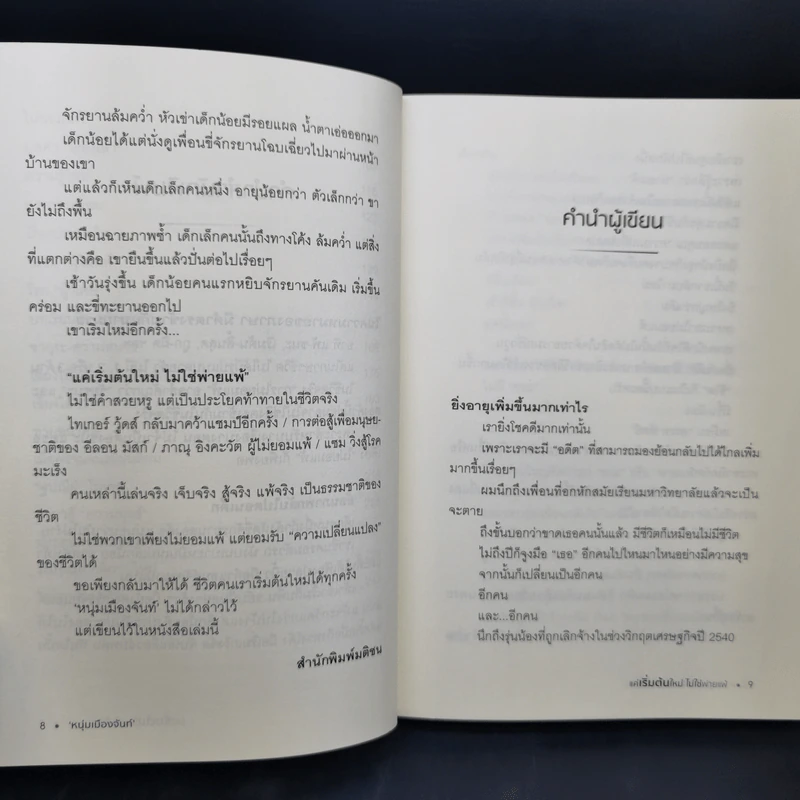 จักรยานล้มคว่ำ หัวเข่าเด็กน้อยมีรอยแผล น้ำตาเอ่อออกมา
เด็กน้อยได้แต่นั่งดูเพื่อนขี่จักรยานโฉบเฉี่ยวไปมาผ่านหน้า
บ้านของเขา
แต่แล้วก็เห็นเด็กเล็กคนหนึ่ง อายุน้อยกว่า ตัวเล็กกว่า ขา
ยังไม่ถึงพื้น
เหมือนฉายภาพซ้ำ เด็กเล็กคนนั้นถึงทางโค้ง ล้มคว่ำ แต่สิ่ง
ที่แตกต่างคือ เขายืนขึ้นแล้วปั่นต่อไปเรื่อยๆ
เช้าวันรุ่งขึ้น เด็กน้อยคนแรกหยิบจักรยานคันเดิม เริ่มขึ้น
คร่อม และขี่ทะยานออกไป
เขาเริ่มใหม่อีกครั้ง...
"แค่เริ่มต้นใหม่ ไม่ใช่พ่ายแพ้"
ไม่ใช่คำสวยหรู แต่เป็นประโยคท้าทายในชีวิตจริง
ไทเกอร์ วู้ดส์ กลับมาคว้าแชมป์อีกครั้ง / การต่อสู้เพื่อมนุษย-
ชาติของ อีลอน มัสก์ / ภาณุ อิงคะวัต ผู้ไม่ยอมแพ้ / แซม วิ่งสู้โรค
มะเร็ง
คนเหล่านี้เล่นจริง เจ็บจริง สู้จริง แพ้จริง เป็นธรรมชาติของ
ชีวิต
ไม่ใช่พวกเขาเพียงไม่ยอมแพ้ แต่ยอมรับ "ความเปลี่ยนแปลง"
ของชีวิตได้
ขอเพียงกลับมาให้ได้ ชีวิตคนเราเริ่มต้นใหม่ได้ทุกครั้ง
'หนุ่มเมืองจันท์' ไม่ได้กล่าวไว้
แต่เขียนไว้ในหนังสือเล่มนี้
สำนักพิมพ์มติชน
8 • 'หนุ่มเมืองจันท์'
คำนำผู้เขียน
ยิ่งอายุเพิ่มขึ้นมากเท่าไร
เรายิ่งโชคดีมากเท่านั้น
เพราะเราจะมี "อดีต" ที่สามารถมองย้อนกลับไปได้ไกลเพิ่ม
มากขึ้นเรื่อยๆ
ผมนึกถึงเพื่อนที่อกหักสมัยเรียนมหาวิทยาลัยแล้วจะเป็น
จะตาย
ถึงขั้นบอกว่าขาดเธอคนนั้นแล้ว มีชีวิตก็เหมือนไม่มีชีวิต
ไม่ถึงปีก็จูงมือ "เธอ" อีกคนไปไหนมาไหนอย่างมีความสุข
จากนั้นก็เปลี่ยนเป็นอีกคน
อีกคน
และ...อีกคน
นึกถึงรุ่นน้องที่ถูกเลิกจ้างในช่วงวิกฤตเศรษฐกิจปี 2540
แค่เริ่มต้นใหม่ ไม่ใช่พ่ายแพ้ • 9